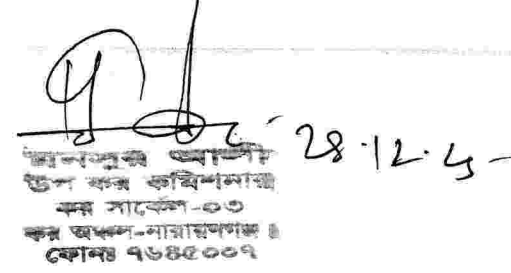 28.12.
মনসুর আলী
উপ কর কমিশনার
কর সার্কেল-০৩
কর অঞ্চল-নারায়ণগঞ্জ।
ফোনঃ ৭৬৪৫০০৭